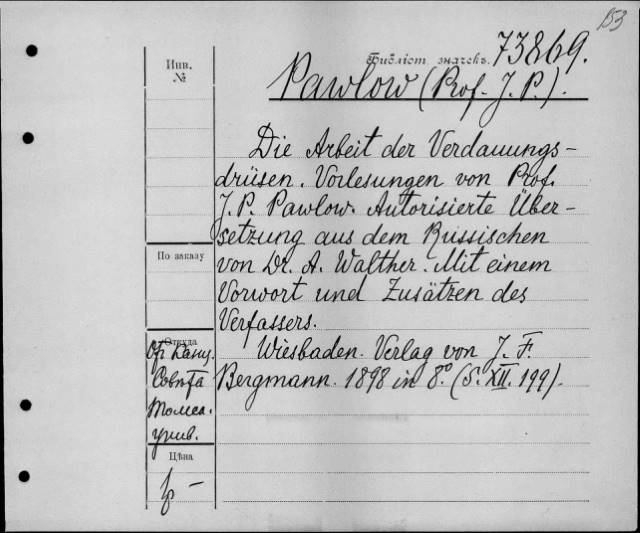 153
Библіот. значекъ. 73869.
Инв. №
Pawlow (Prof. J. P.).
Die Arbeit der Verdauungs-
drüsen. Vorlesungen von Prof.
J. P. Pawlow. Autorisierte Über-
setzung aus dem Russischen
По заказу
von Dr. A. Walther. Mit einem
Vorwort und Zusätzen des
Verfassers.
Откуда
Wiesbaden. Verlag von J. F.
Bergmann. 1898 in 8.° (S. XII. 199).
Совѣта
Томск.
унив.
Цѣна